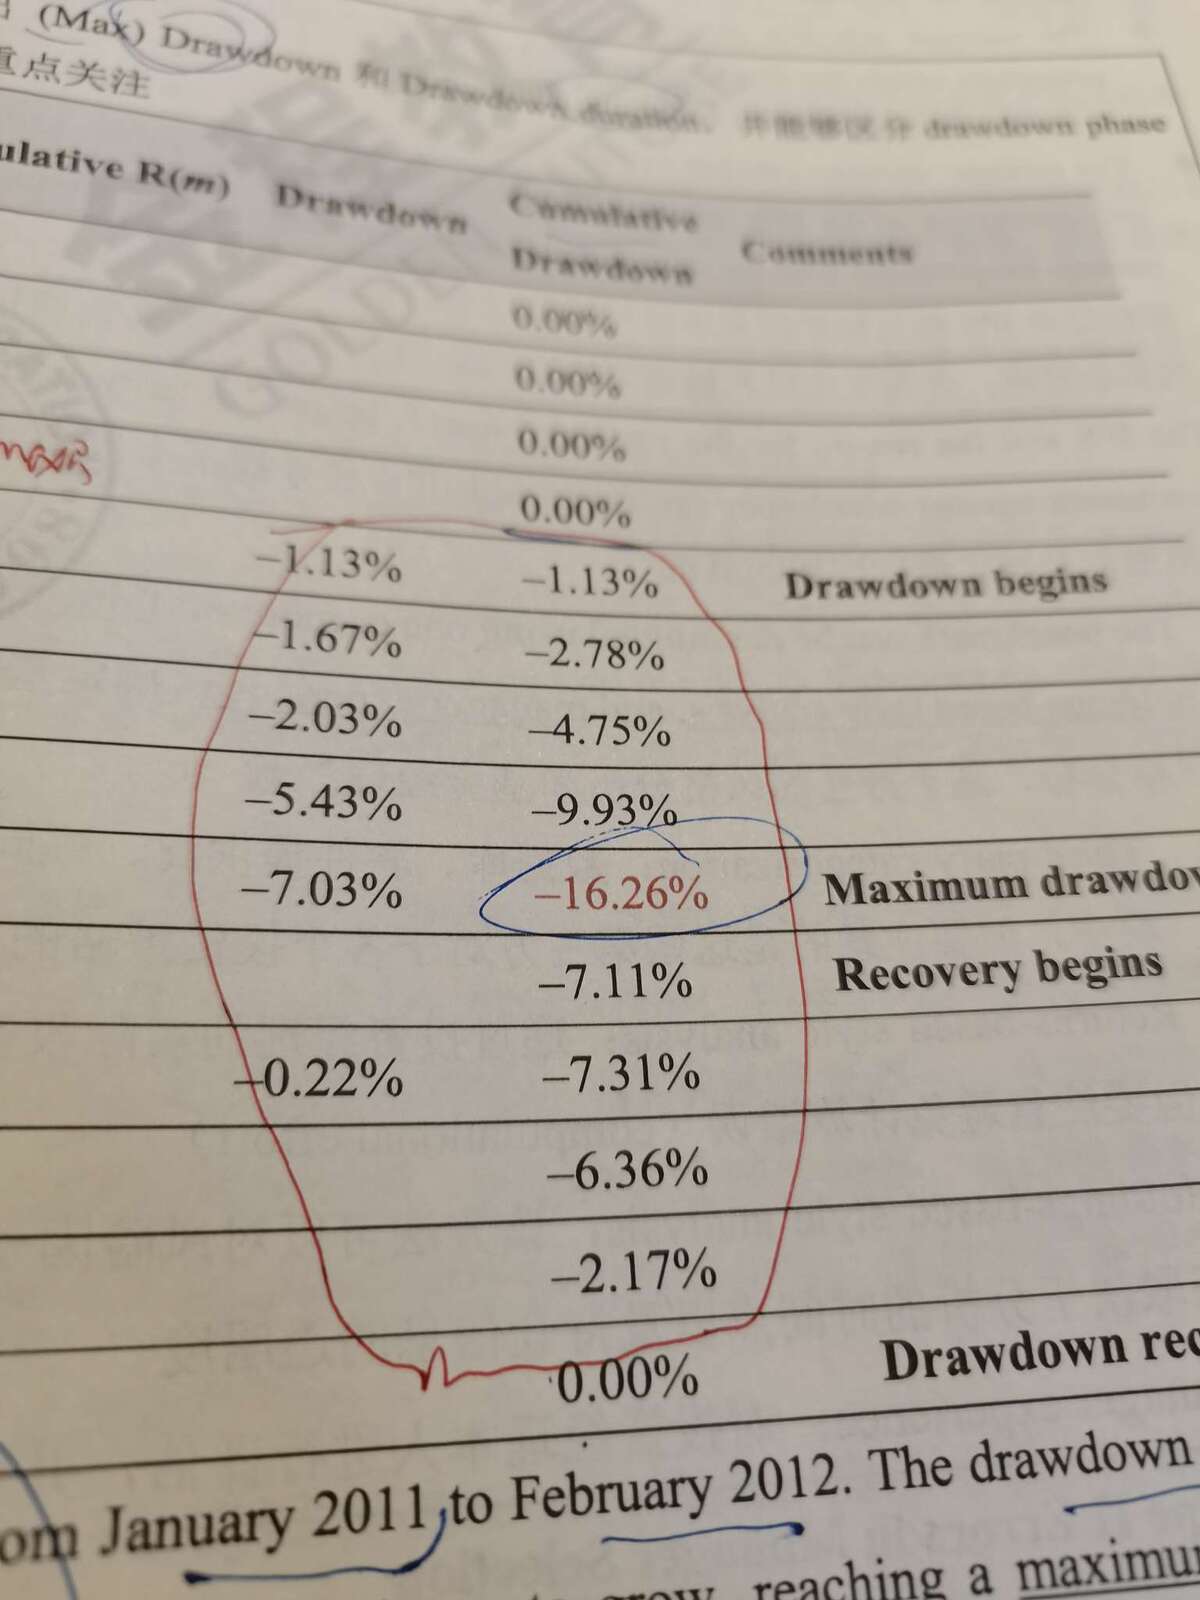 (Max) Drawdown 和 Drawdown duration， 并能够区分 drawdown phase
重点关注
ulative R(m) Drawdown Cumulative Drawdown Comments
0.00%
0.00%
0.00%
0.00%
–1.13% –1.13% Drawdown begins
–1.67% –2.78%
–2.03% –4.75%
–5.43% –9.93%
–7.03% –16.26% Maximum drawdow
–7.11% Recovery begins
–0.22% –7.31%
–6.36%
–2.17%
0.00% Drawdown rec
om January 2011 to February 2012. The drawdown
grow, reaching a maximu